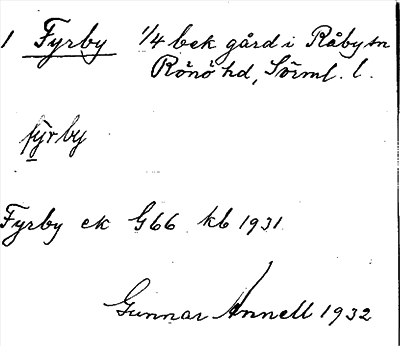 1 Fyrby 1/4 bek gård i Råby sn
Rönö hd, Sörml. l.
fyrby
Fyrby ek G66 kb 1931
Gunnar Annell 1932